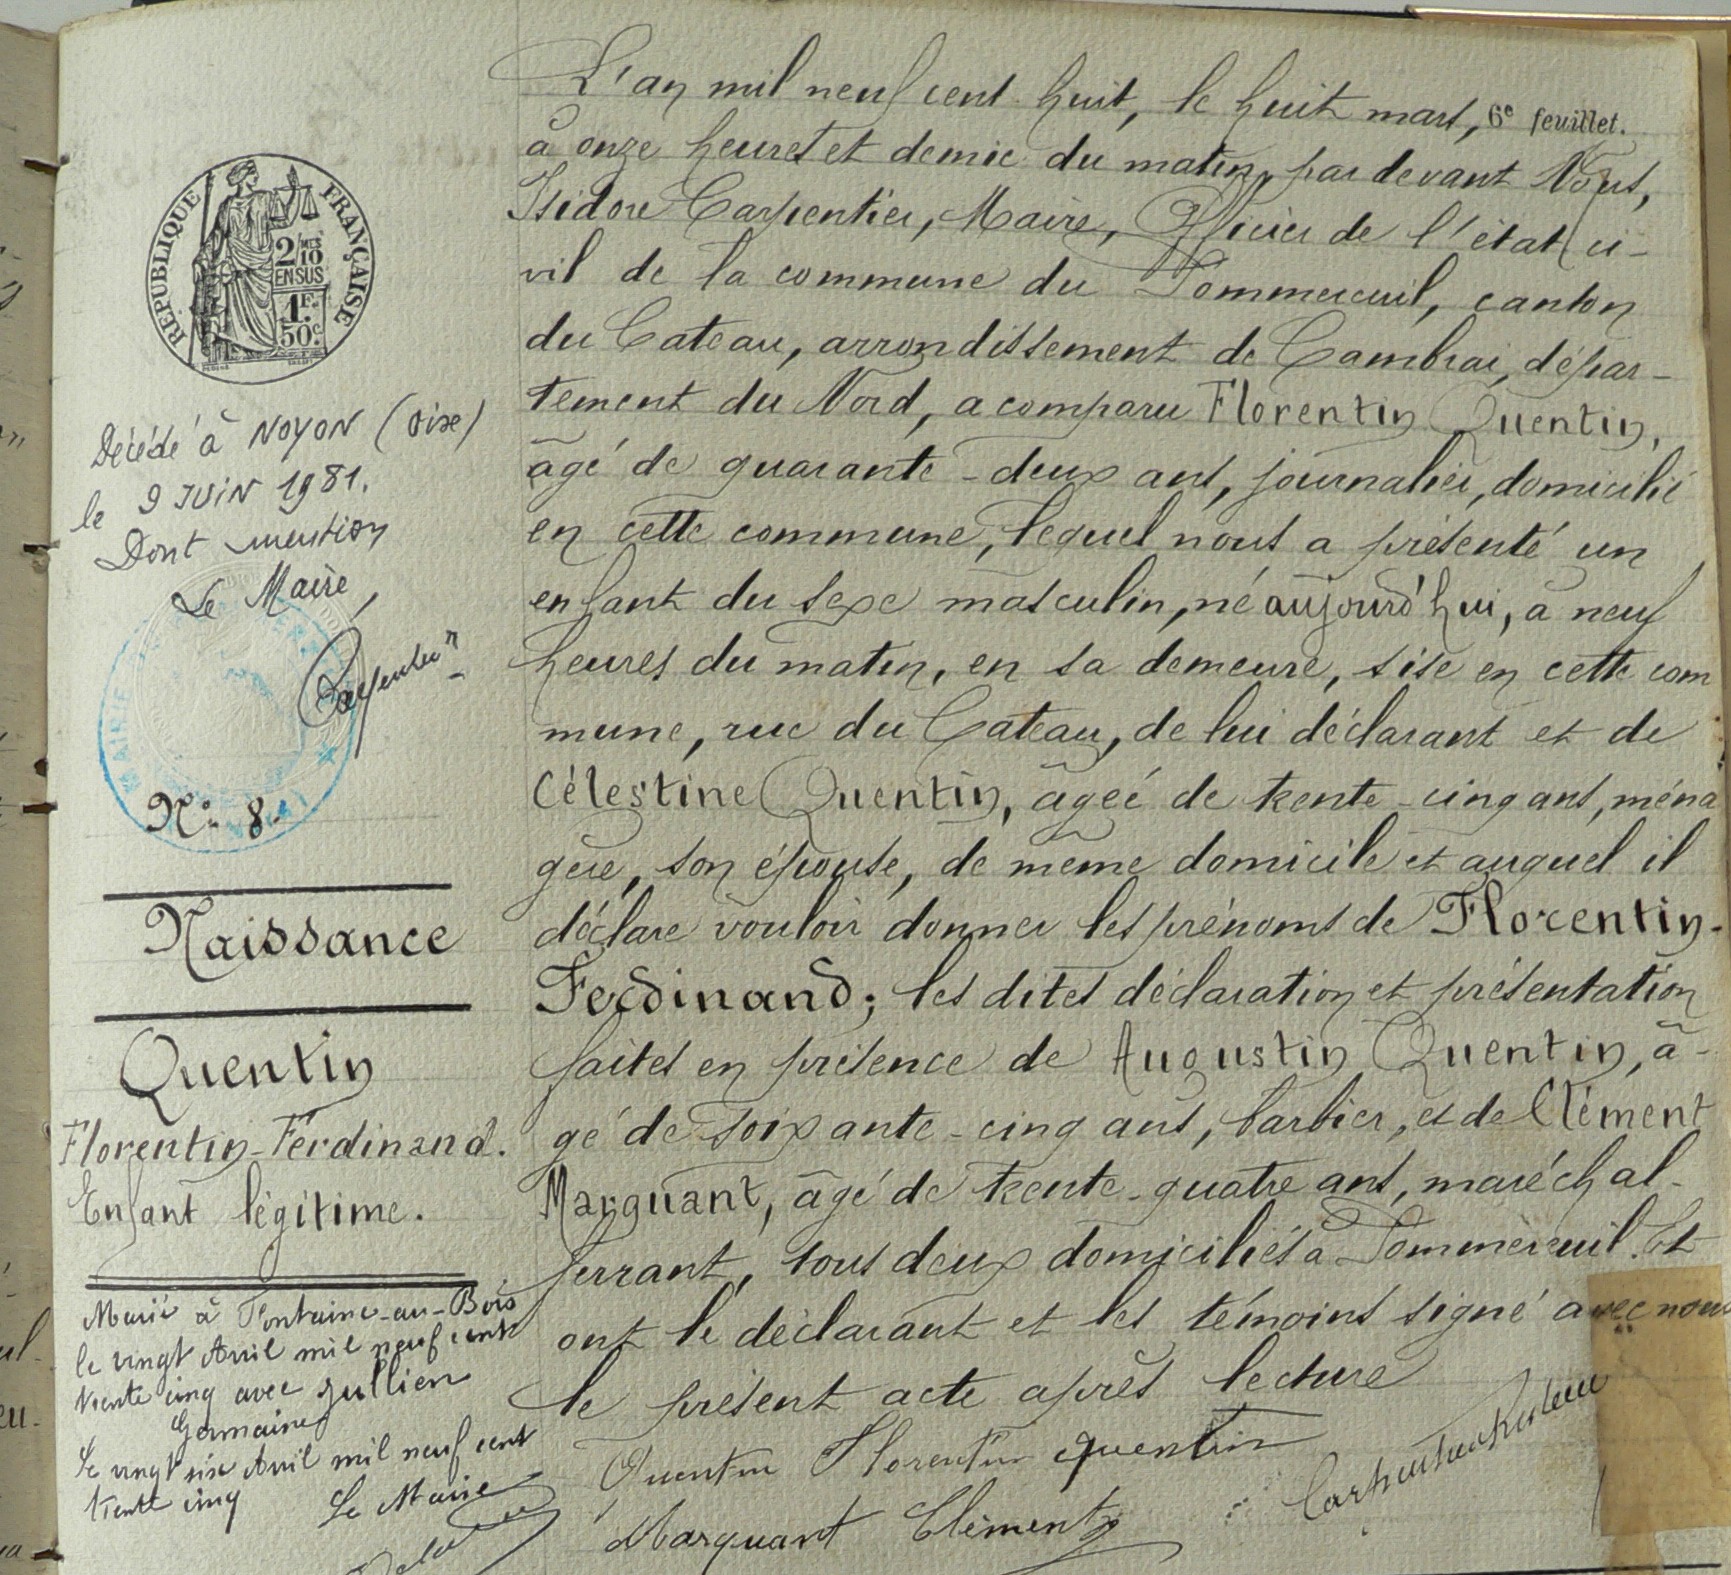 L'an mil neuf cent huit, le huit mars, 6e feuillet.
à onze heures et demie du matin, par devant Nous,
Isidore Carpentier, Maire, Officier de l'état ci-
vil de la commune du Pommereuil, canton
du Cateau, arrondissement de Cambrai, dépar-
tement du Nord, a comparu Florentin Quentin,
âgé de quarante-deux ans, journalier, domicilié
en cette commune, lequel nous a présenté un
enfant du sexe masculin, né aujourd'hui, à neuf
heures du matin, en sa demeure, sise en cette com
mune, rue du Cateau, de lui déclarant et de
Célestine Quentin, âgée de trente-cinq ans, ména
gère, son épouse, de même domicile et auquel il
déclare vouloir donner les prénoms de Florentin-
Ferdinand; les dites déclaration et présentation
faites en présence de Augustin Quentin, â-
gé de soixante-cinq ans, barbier, et de Clément
Marquant, âgé de trente-quatre ans, maréchal-
ferrant, tous deux domiciliés à Pommereuil. Et
ont le déclarant et les témoins signé avec nous
le présent acte après lecture
Quentin Florentin quentin
Marquant Clément
REPUBLIQUE FRANÇAISE
2/10 MES
EN SUS
1F.
50c.
Décédé à NOYON (Oise)
le 9 JUIN 1981.
Dont mention
Le Maire,
MAIRIE
N° 8.
Naissance
Quentin
Florentin-Ferdinand.
Enfant légitime.
Marié à Fontaine-au-Bois
le vingt Avril mil neuf cent
trente cinq avec Jullien
Germaine
Le vingt six Avril mil neuf cent
trente cinq
Le Maire